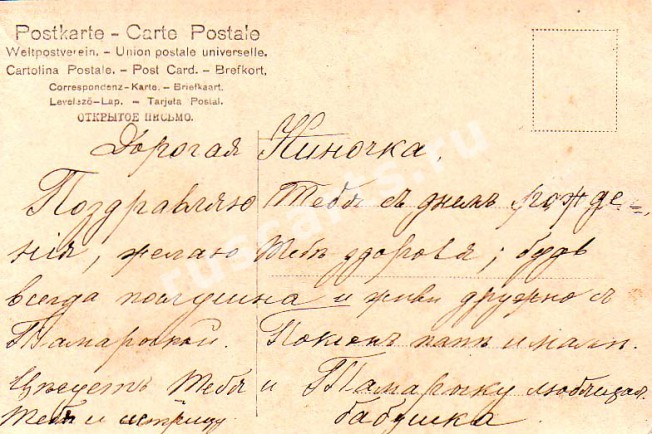 Postkarte – Carte Postale
Weltpostverein. – Union postale universelle.
Cartolina Postale. – Post Card. – Brefkort.
Correspondenz-Karte. – Briefkaart.
Levelező-Lap. – Tarjeta Postal.
ОТКРЫТОЕ ПИСЬМО.
Дорогая Ниночка,
Поздравляю Тебя съ днемъ рожде-
нія, желаю Тебѣ здоровья; будь
всегда послушна и живи дружно съ
Тамарочкой. Поклонъ папѣ и мамѣ.
Цѣлуетъ Тебя и Тамарочку любящая
Тебя и сестрицу бабушка
ruscards.ru